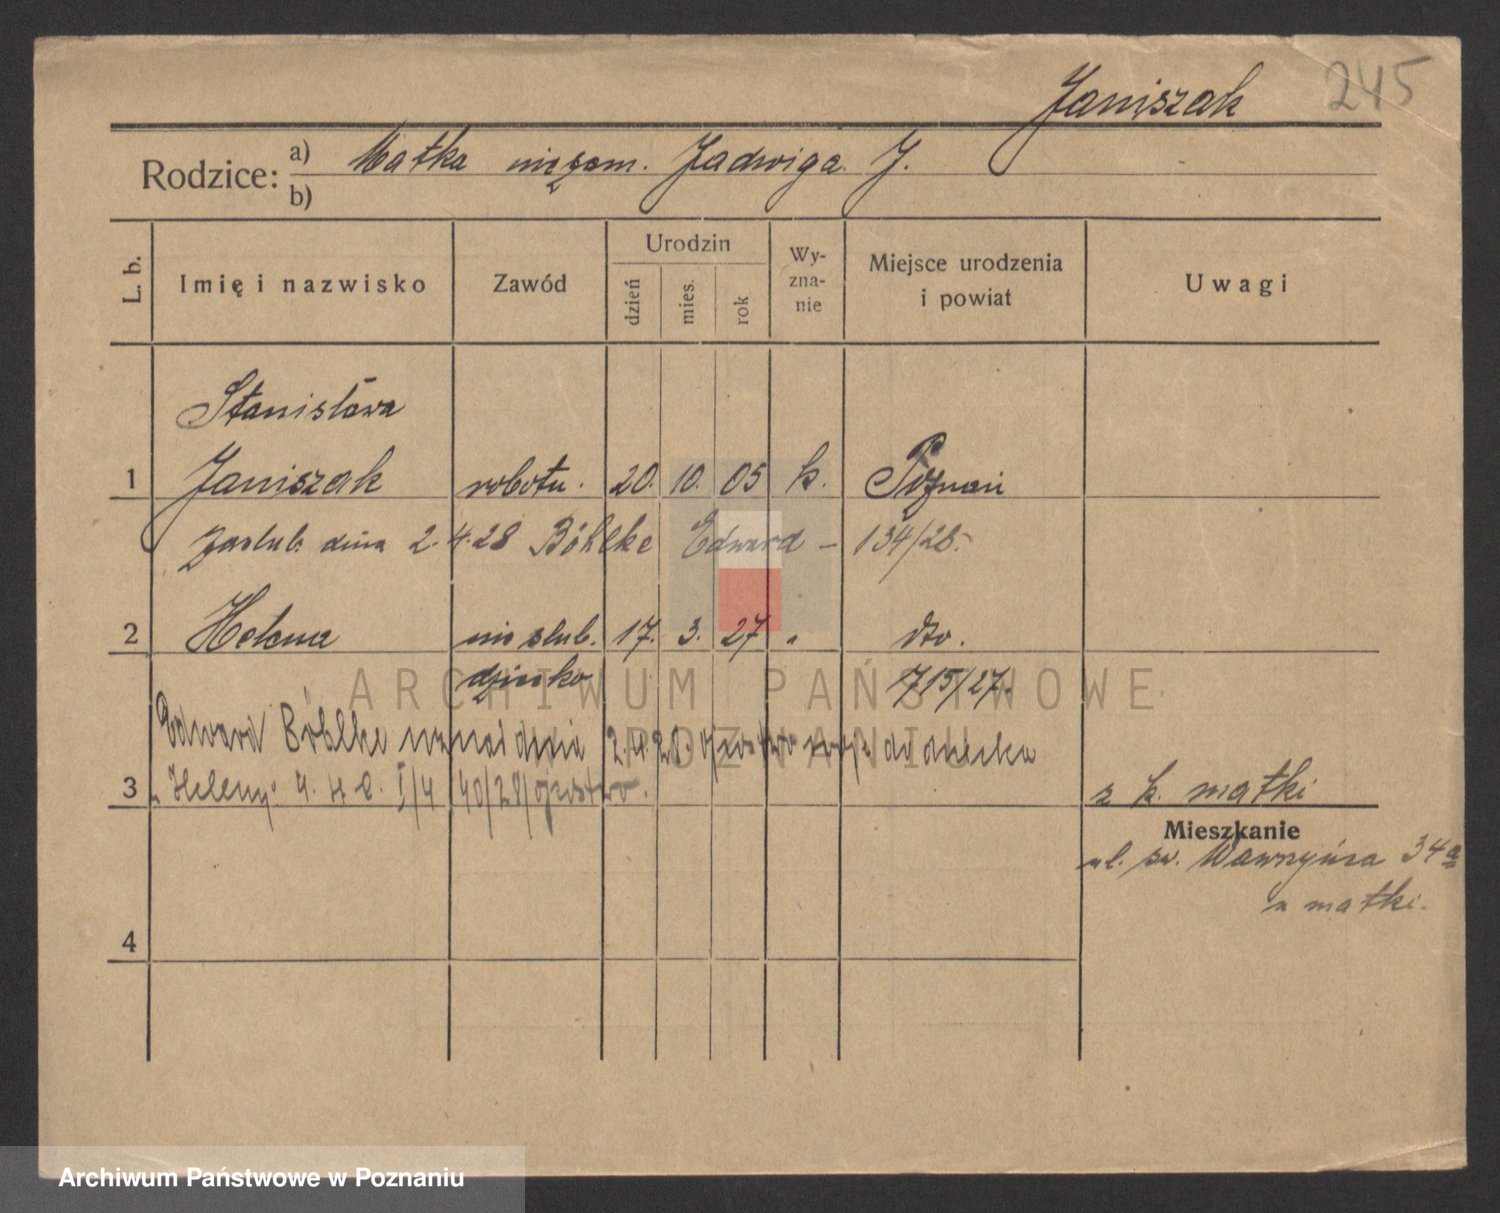 Janiszak 245
Rodzice: a) Matka niezam. Jadwiga J.
b)
L. b. Imię i nazwisko Zawód Urodzin dzień mies. rok Wy-zna-nie Miejsce urodzenia i powiat Uwagi
Stanisława
1 Janiszak robotn. 20. 10. 05 k. Poznań
zaślub. dnia 2.4.28 Böhlke Edward – 134/28.
2 Helena nieślub. 17. 3. 27 " dto.
dziecko 715/27.
Edward Böhlke uznał dnia 2.4.28. ojcostwo swoje do dziecka
3 "Heleny" I/4 40/28/ojcostwo.
z k. matki
Mieszkanie
ul. św. Wawrzyńca 34a
u matki.
4
ARCHIWUM PAŃSTWOWE
W POZNANIU
Archiwum Państwowe w Poznaniu